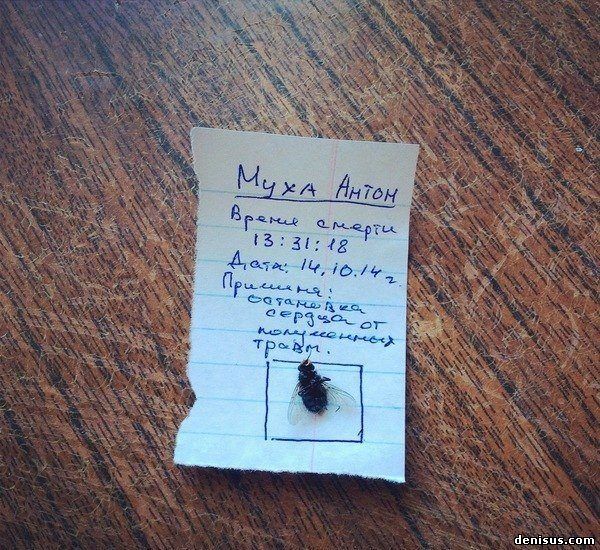 Муха Антон
Время смерти
13:31:18
Дата: 14.10.14 г.
Причина:
остановка
сердца от
полученных
травм.
denisus.com